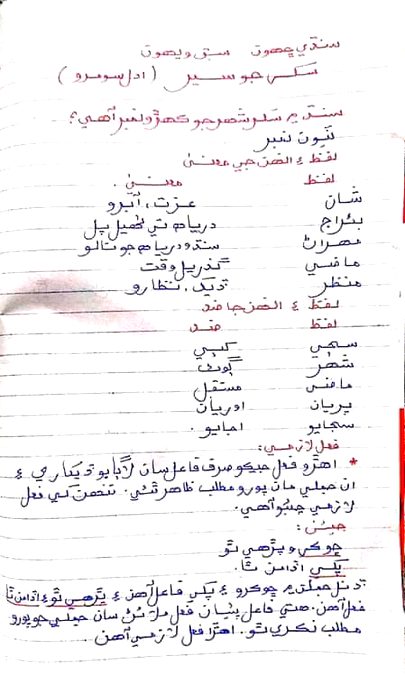 سنڌي ڇهون سبق ويهون
سکر جو سير (ادل سومرو)
سنڌ ۾ سکر شهر جو ڪهڙو نمبر آهي؟
ٽيون نمبر
لفظ ۽ انهن جي معنيٰ
لفظ معنيٰ
شان عزت، آبرو
بئراج درياھ تي ٺهيل پل
مهراڻ سنڌو درياھ جو نالو
ماضي گذريل وقت
منظر ڏيک، نظارو
لفظ ۽ انهن جا ضد
لفظ ضد
سڄي کٻي
شهر ڳوٺ
ماضي مستقبل
پريان اوريان
سڄايو اجايو
فعل لازمي:
* اهڙو فعل جيڪو صرف فاعل سان لاڳاپو ڏيکاري ۽
ان جملي مان پورو مطلب ظاهر ٿئي. تنهن کي فعل
لازمي چئبو آهي.
جيئن:
ڇوڪرو پڙهي ٿو
پکي اڏامن ٿا.
ڏنل جملن ۾ ڇوڪرو ۽ پکي فاعل آهن ۽ پڙهي ٿو ۽ اڏامن ٿا
فعل آهن. هتي فاعل پٺيان فعل ملائڻ سان جملي جو پورو
مطلب نڪري ٿو. اهڙا فعل لازمي آهن.